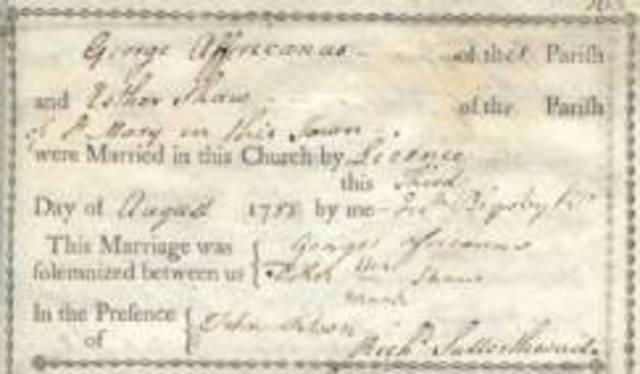 George Affricanus of the Parish
and Esther Shaw of the Parish
of St Mary in this Town
were Married in this Church by Licence
this Third
Day of August 1788 by me
This Marriage was George Africanus
solemnized between us Esther Her Shaw
mark
In the Presence John
of Richd